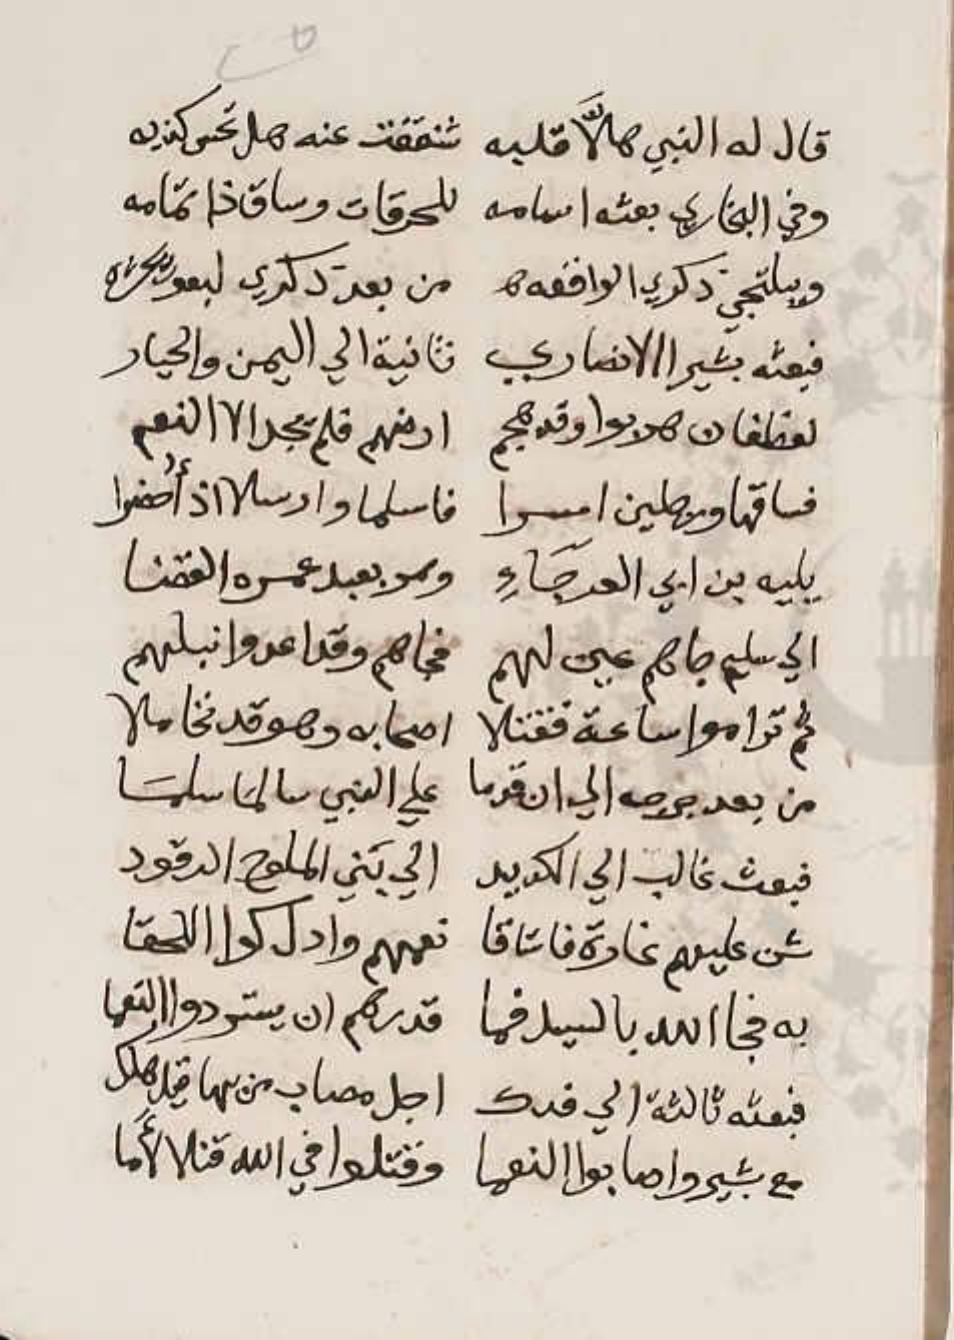 قال له النبي هلا قلبه شققت عنه هل تحس كذبه
وفي البخاري بعثه اسامه للحرقات وساق ذا تمامه
ويلتجي ذكري الواقفه من بعد ذكري لبعوث
فبعثه بشيرا الانصاري ثانية الي اليمن والجبار
لغطفان هربوا وقد هجم ارضهم فلم يجد الا النعم
فساقها ورجلين اسرا فاسلما وارسلا اذ أحضرا
يليه بن ابي العوجَاءِ وهو بعيد عمرة القضا
الي سليم جاهم عين لهم فجاهم وقد اعدوا نبلهم
ثم تراموا ساعة فقتلا اصحابه وهو قد تحاملا
من بعد جرحه الي ان قدما علي النبي سالما سلمَا
فبعث غالب الي الكديد الي بَني الملوح الرقود
شن عليهم غارة فاستاقا نعمهم وادركوا اللحقا
به فجا الله بالسيل فما قدرهم ان يستردوا النعما
فبعثه ثالثة الي فدك اجل مصاب من بها قبل هلك
مع بشير واصابوا النعما وقتلوا في الله قتلا لأَما